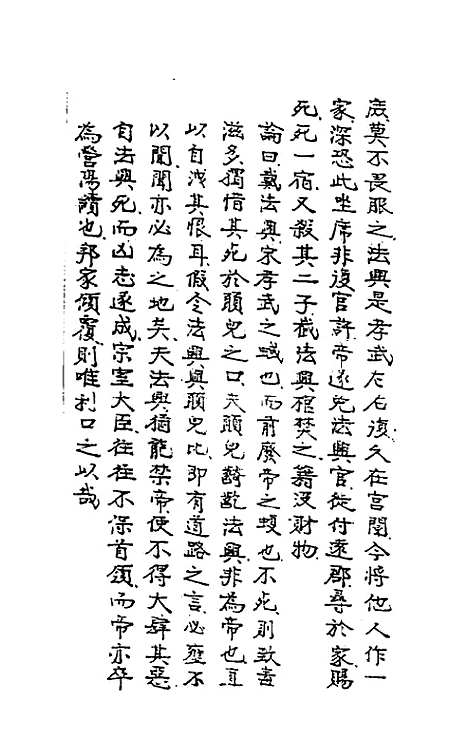 底莫不畏服之法興是孝武左右復久在宮闈今將他人作一
家深恐此坐席非復官許帝遂免法興官徙付遠郡尋於家賜
死死一宿又殺其二子截法興棺焚之籍沒財物
論曰戴法興宋孝武之蜮也而前廢帝之蝮也不死則致毒
滋多獨惜其死於願兒之口夫願兒齮齕法興非為帝也直
以自洩其恨耳假令法興與願兒比即有道路之言必壅不
以聞聞亦必為之地矣夫法興猶能禁帝使不得大肆其惡
自法興死而凶志遂成宗室大臣往往不保首領而帝亦卒
為營陽續也邦家傾覆則唯利口之以哉